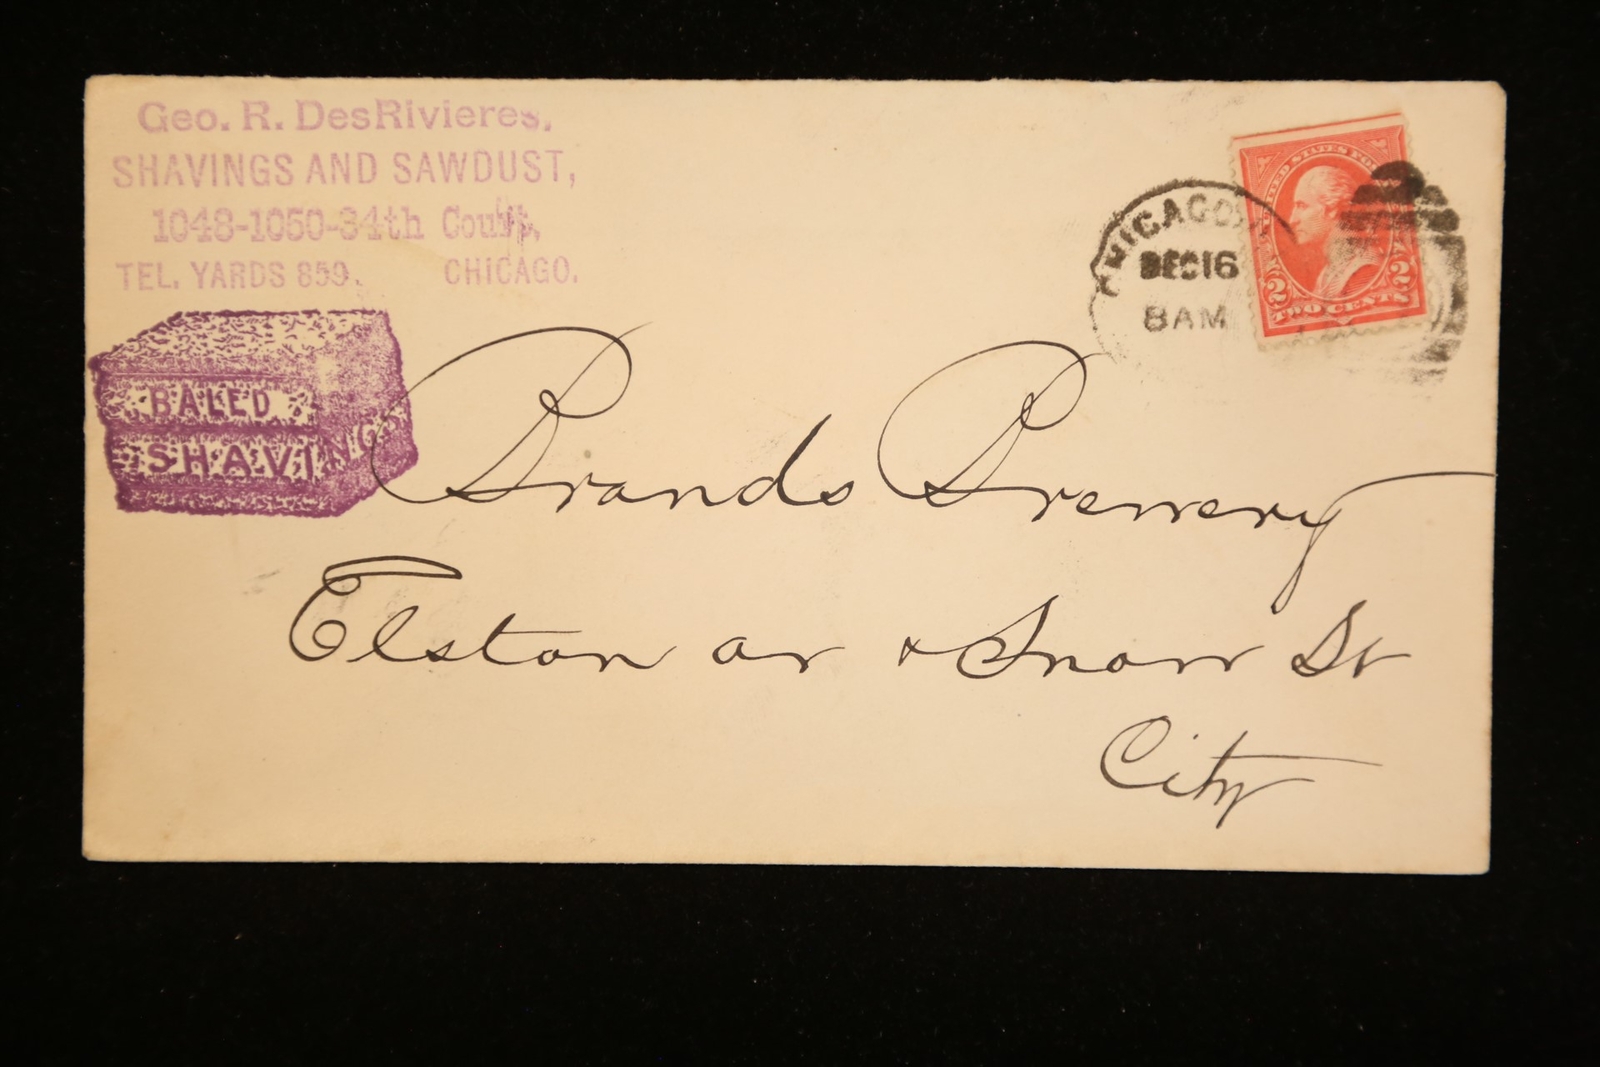 Geo. R. DesRivieres,
SHAVINGS AND SAWDUST,
1048-1050-34th Court,
TEL. YARDS 859. CHICAGO.
BALED
SHAVINGS
CHICAGO
DEC 16
8 AM
UNITED STATES POSTAGE
2 2
TWO CENTS
Brands Brewery
Elston av & Snow St
City